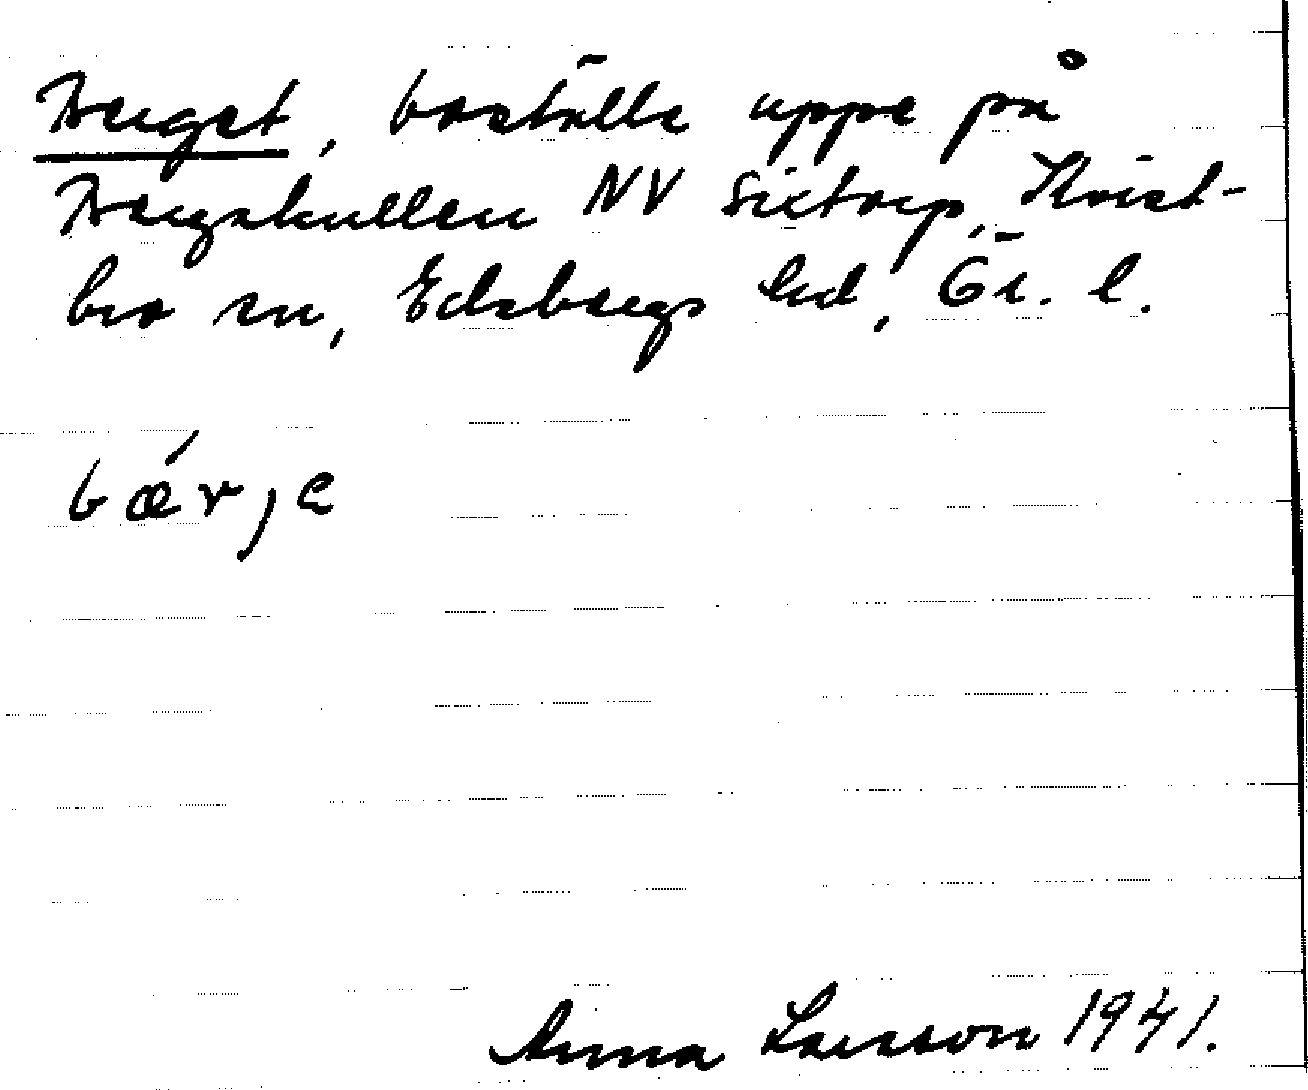 Berget, boställe uppe på
Bergskullen NV Sictorp, Kvist-
bro sn, Edsbergs hd, Ör. l.
bǽrje
Anna Larsson 1941.